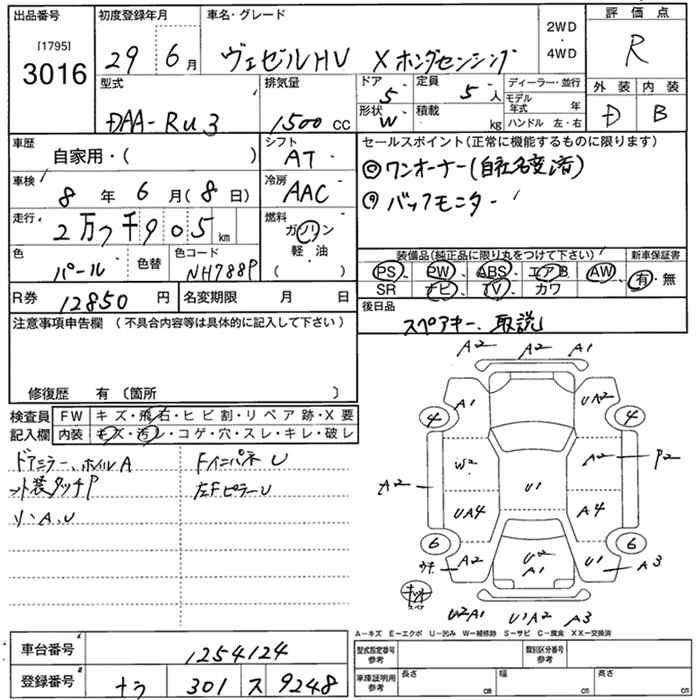 出品番号 初度登録年月 車名・グレード 2WD・4WD 評価点
[1795]
3016
29 6月 ヴェゼルHV Xホンダセンシング R
型式 排気量 ドア 5 定員 5人 ディーラー・並行 外装 内装
DAA-RU3 1500cc 形状 W 積載 kg モデル年式 年 D B
ハンドル 左・右
車歴 自家用・( ) シフト AT セールスポイント(正常に機能するものに限ります)
◎ワンオーナー(自社名変済)
車検 8年 6月(8日) 冷房 AAC
◎バックモニター
走行 2万7千905km 燃料 ガソリン
軽油
( )
色 パール 色替 色コード NH788P
装備品(純正品に限り丸をつけて下さい) 新車保証書
PS、PW、ABS、エアB AW、 有・無
SR ナビ、TV、カワ
R券 12850円 名変期限 月 日
後日品
スペアキー、取説
注意事項申告欄 (不具合内容等は具体的に記入して下さい)
修復歴 有〔箇所 〕
検査員記入欄
FW キズ・飛石・ヒビ割・リペア跡・X要
内装 キズ・汚レ・コゲ・穴・スレ・キレ・破レ
ドアミラー、ホイルA FインパネU
ット装タッチP 左FピラーU
リ、A、U
A2 A2 A1
A1 UA2
4 4
W2 A2 P2
A2 U1
UA4 A4
6 6
A2 U2 U1 A3
A1
スペア
U2A1 U1A2 A3
A-キズ E-エクボ U-凹み W-補修跡 S-サビ C-腐食 XX-交換済
車台番号 1254124
型式指定番号 参考 類別区分番号 参考
登録番号 ナラ 301 ス 9248
車庫証明用 参考 長さ cm 幅 cm 高さ cm